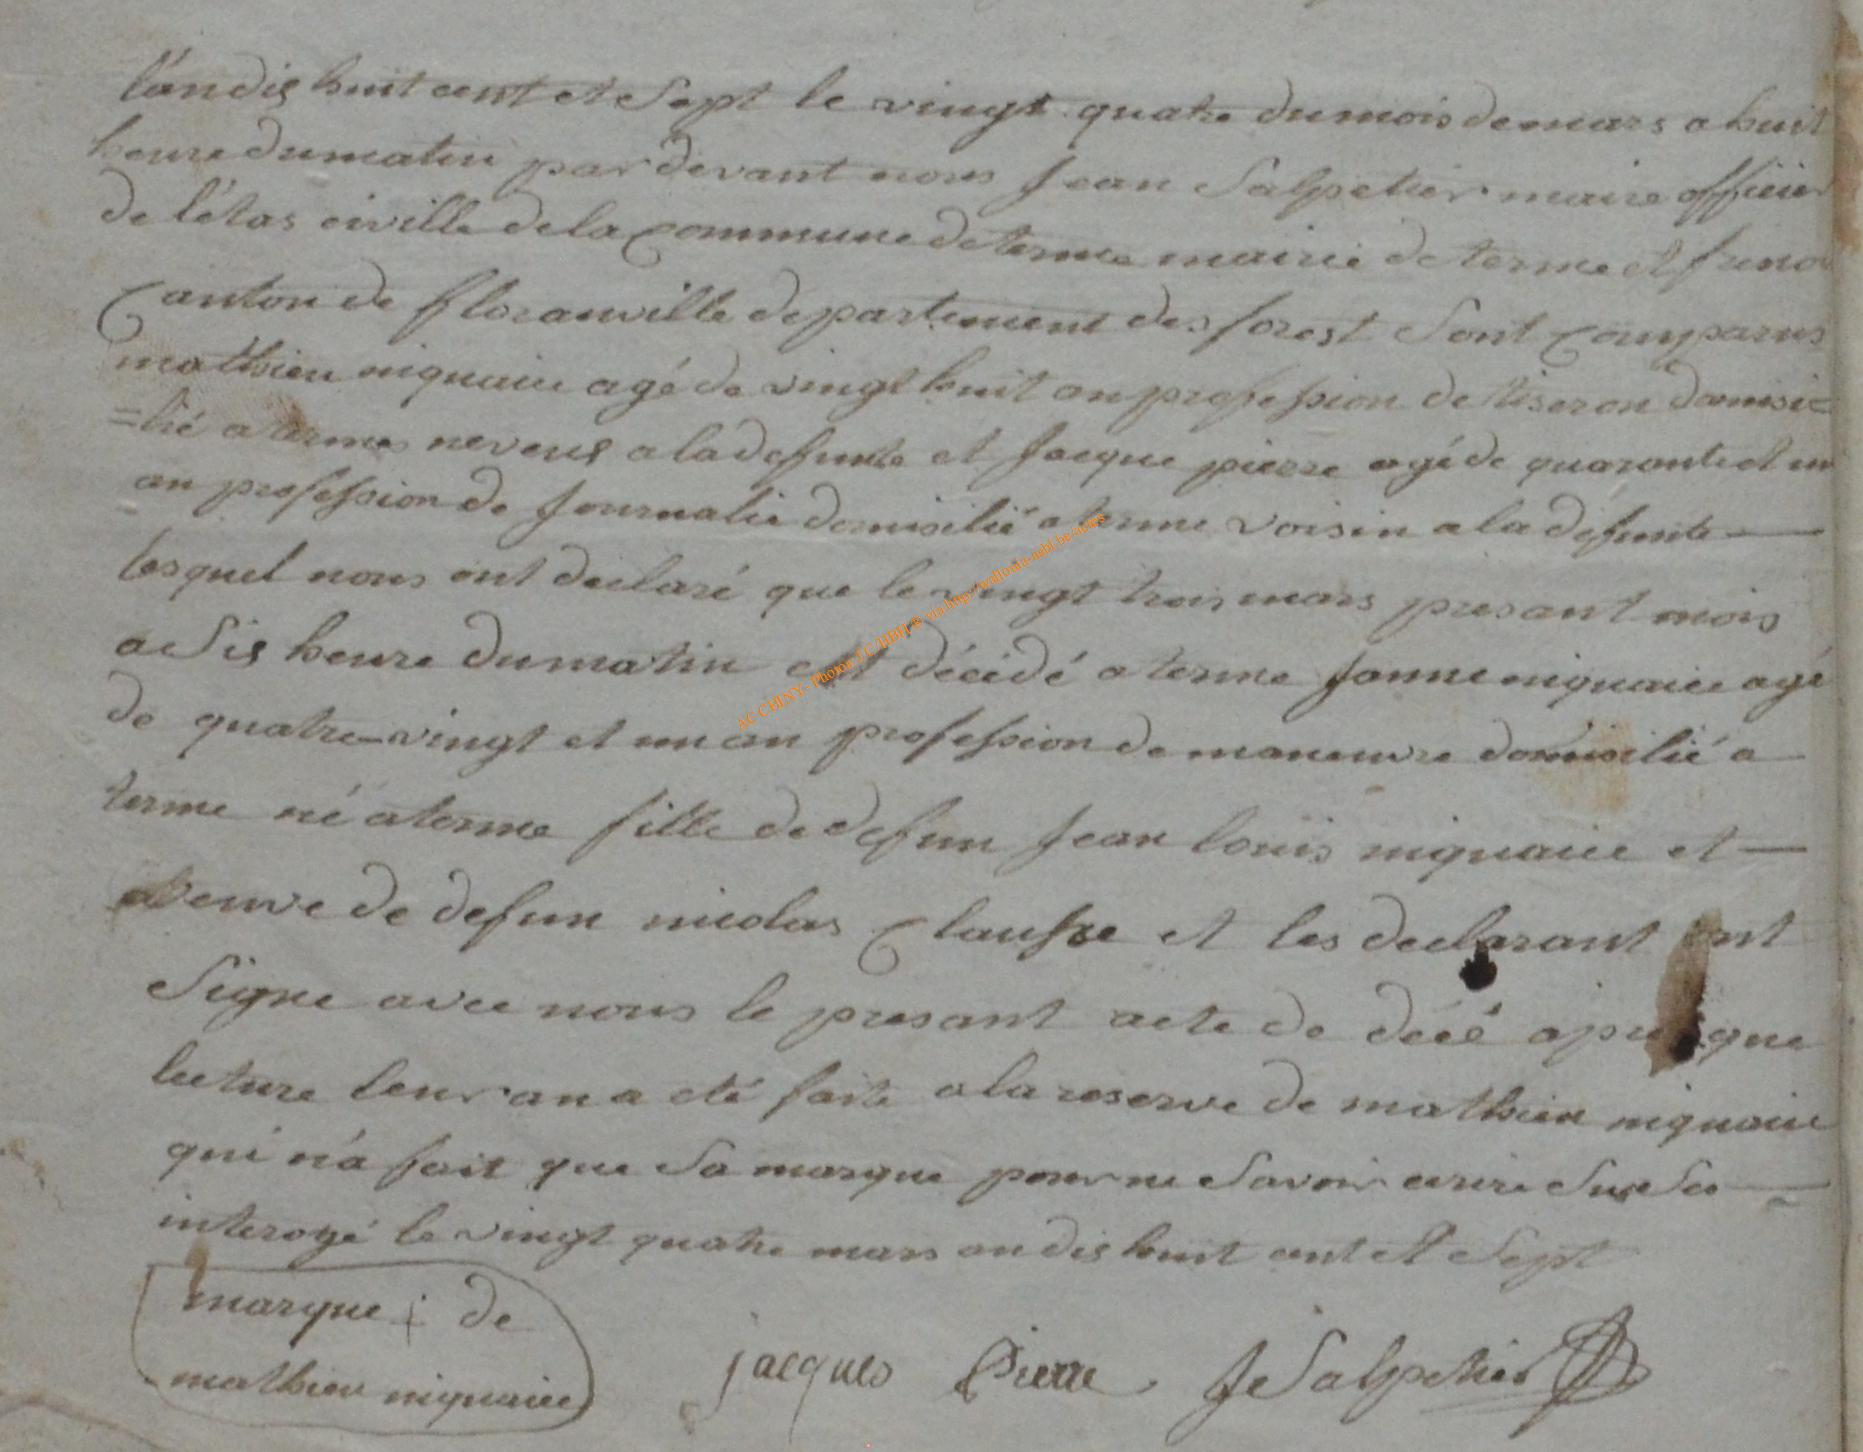 l'an dis huit cent et Sept le vingt quatre du mois de mars a huit
heure du matin par devant nous Jean Salpetier maire officier
de l'étas civille de la Commune de terme mairie de terme et freno
Canton de floranville departement des forest Sont Comparus
mathieu niquaice agé de vingt huit an profession de tiseron domici=
=lié a termes neveus a la defunte et Jacque pierre agé de quarante et un
an profession de Journalie domisilié a terme voisin a la defunte
lesquel nous ont declaré que le vingt trois mars presant mois
a Sis heure du matin est décidé a terme Janne niquaice agé
de quatre-vingt et un an profession de maneuvre domisilié a
terme né a terme fille de defun Jean louïs niquaice et
veuve de defun nicolas Clausse et les declarant ont
Signe avec nous le presant acte de décé apres que
lecture leur an a été faite a la reserve de mathieu niquaice
qui n'a fait que Sa marque pour ne Savoir ecrire Sur Ses
interogé le vingt quatre mars an dis huit cent et Sept
marque + de
mathieu niquaice
jacques Pierre JeSalpetier
AC CHINY - Photos J.C. HBH © via http://wallonia-asbl.be/actes